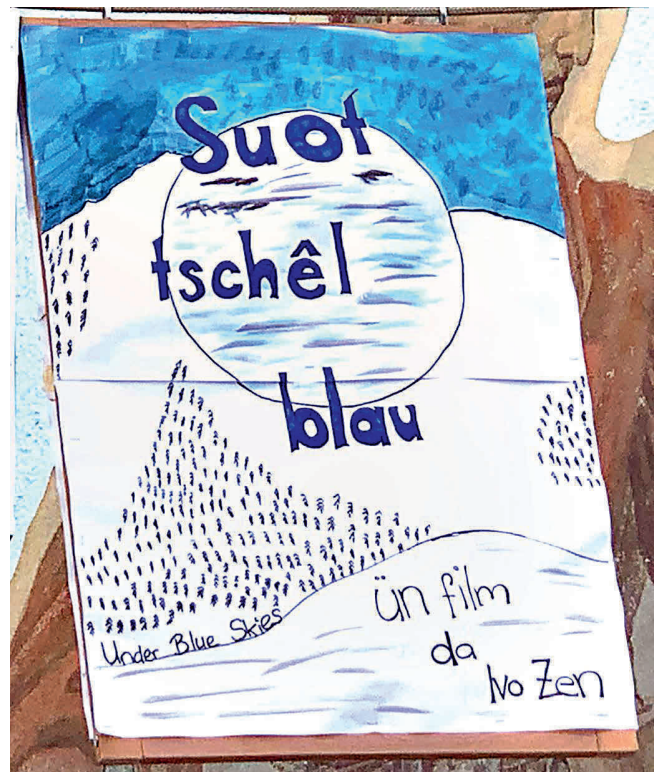 Suot
tschêl
blau
Under Blue Skies
ün film
da
Ivo Zen